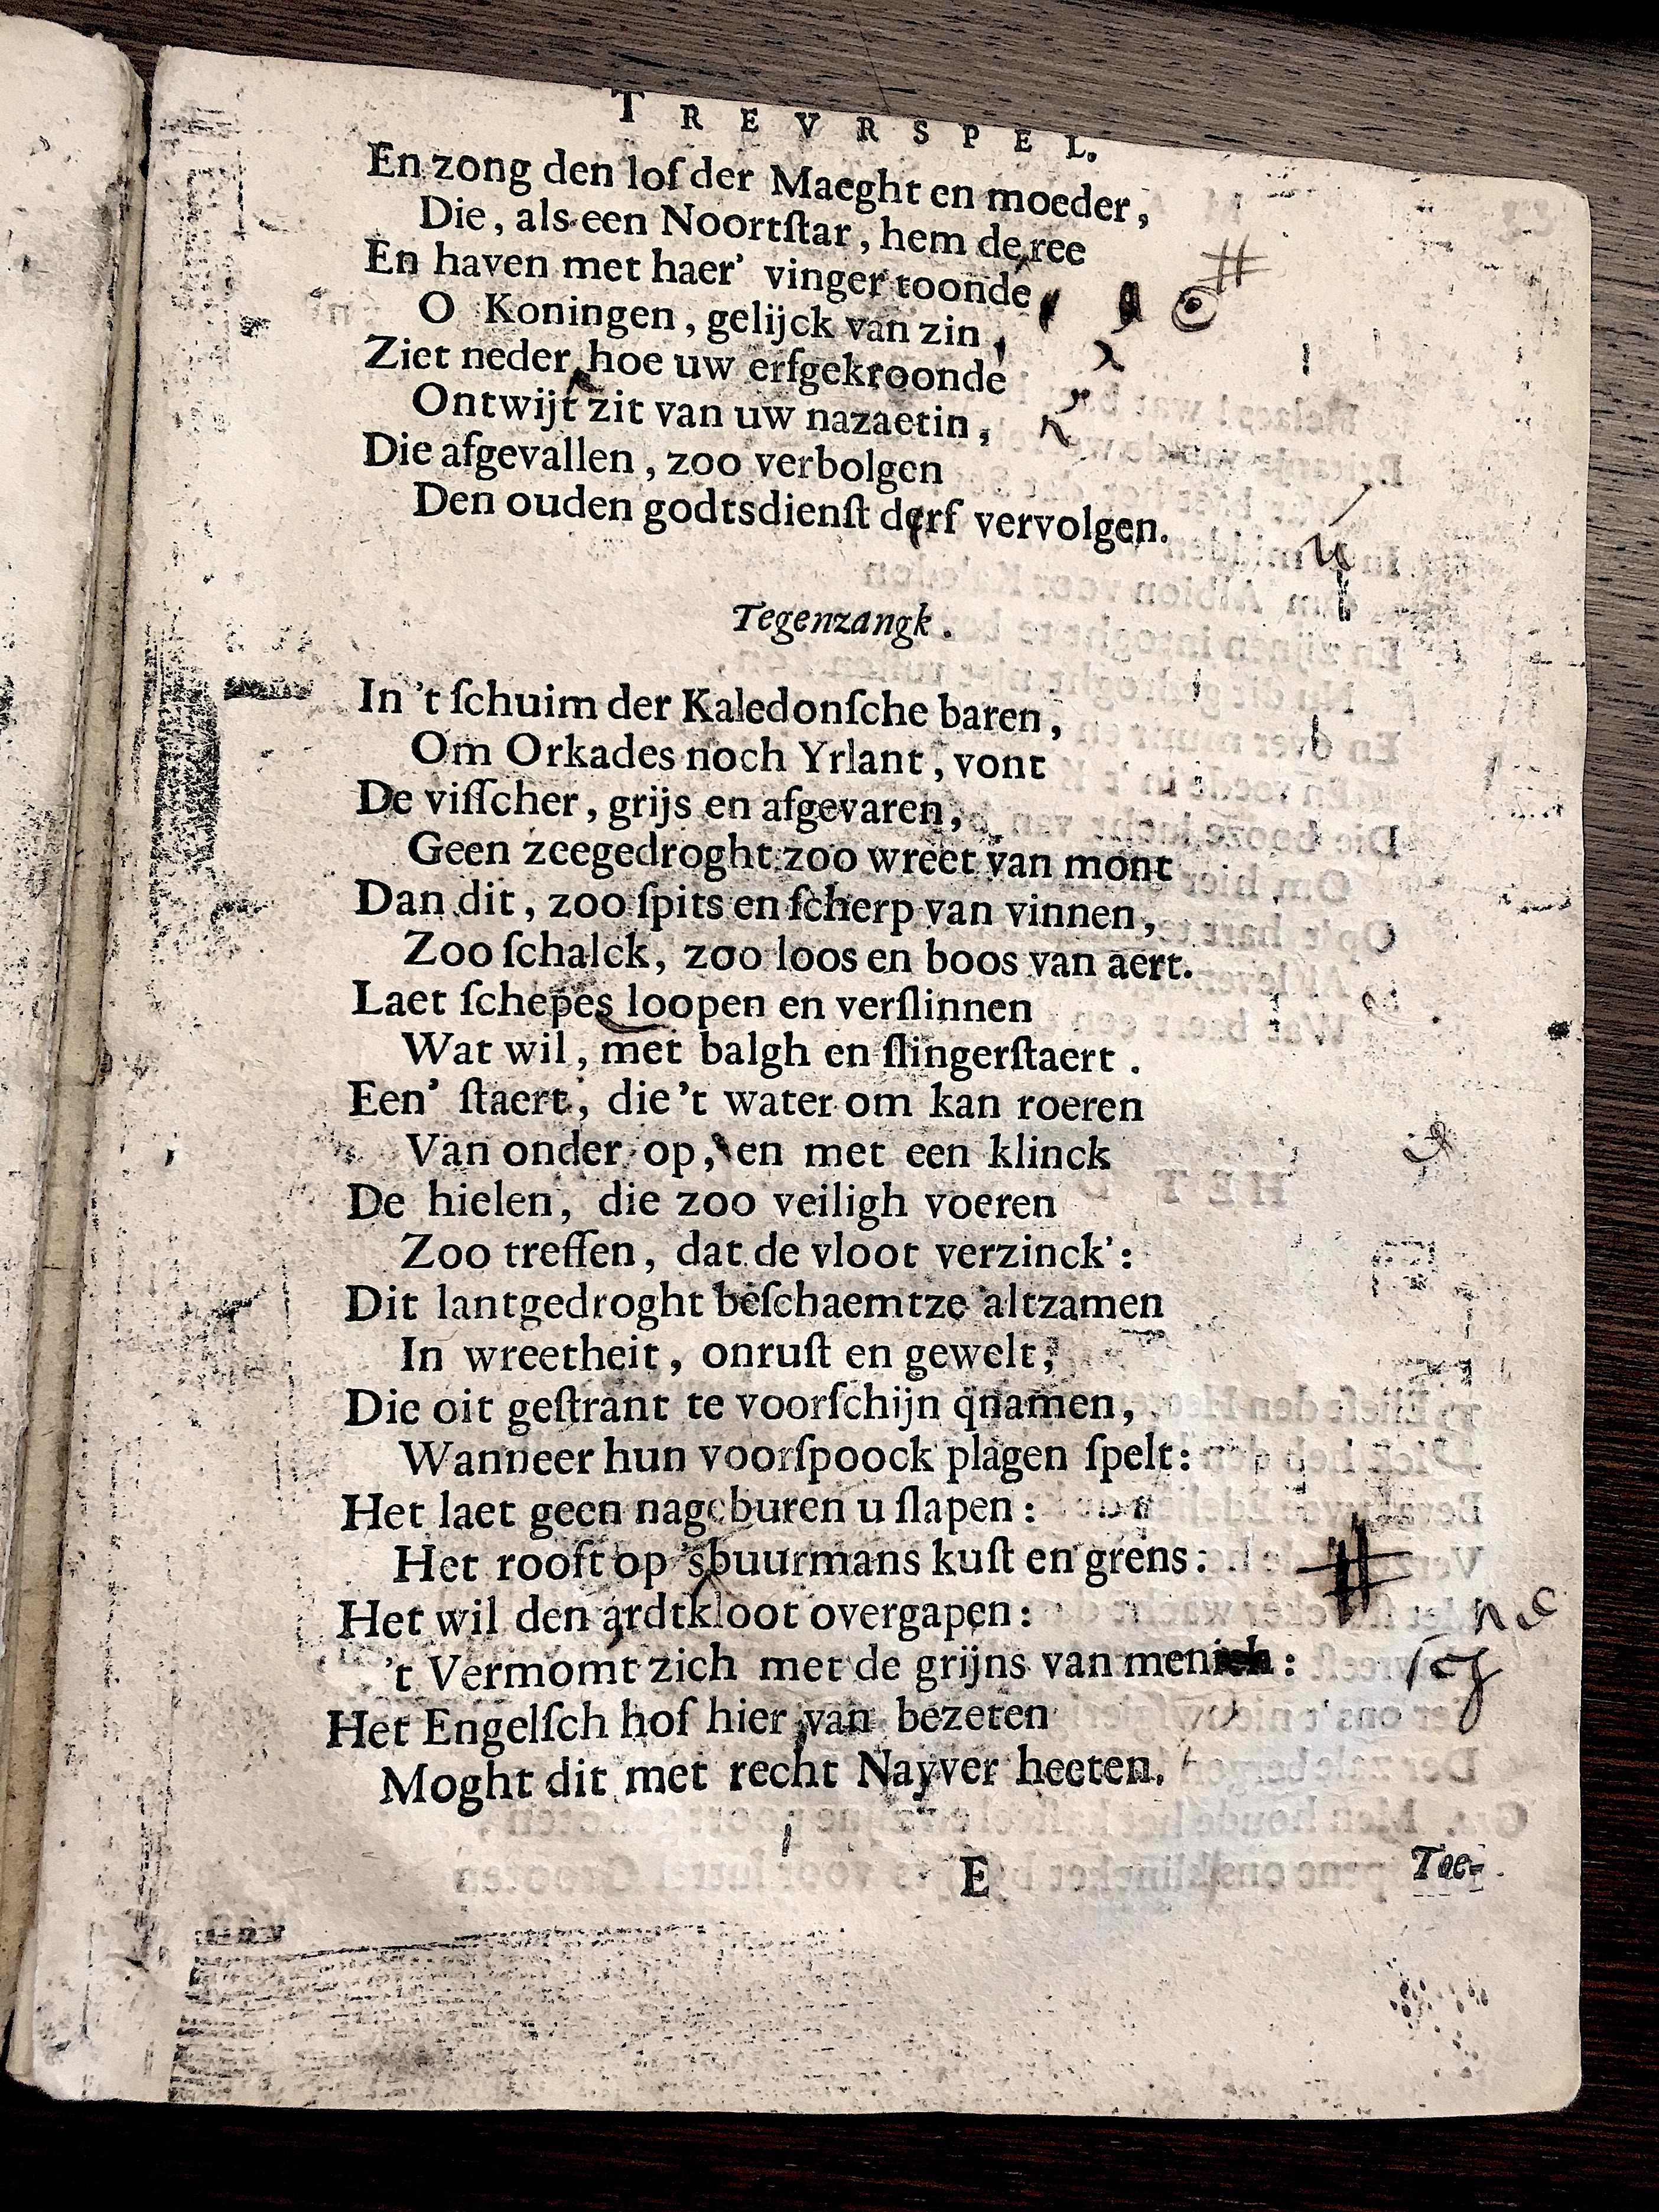 TREVRSPEL.
En zong den lof der Maeght en moeder,
Die, als een Noortſtar, hem de ree
En haven met haer' vinger toonde
O Koningen, gelijck van zin,
Ziet neder hoe uw erfgekroonde
Ontwijt zit van uw nazaetin,
Die afgevallen, zoo verbolgen
Den ouden godtsdienſt derf vervolgen.
Tegenzangk.
In 't ſchuim der Kaledonſche baren,
Om Orkades noch Yrlant, vont
De viſſcher, grijs en afgevaren,
Geen zeegedroght zoo wreet van mont
Dan dit, zoo ſpits en ſcherp van vinnen,
Zoo ſchalck, zoo loos en boos van aert.
Laet ſchepes loopen en verſlinnen
Wat wil, met balgh en ſlingerſtaert.
Een' ſtaert, die 't water om kan roeren
Van onder op, en met een klinck
De hielen, die zoo veiligh voeren
Zoo treffen, dat de vloot verzinck':
Dit lantgedroght beſchaemtze altzamen
In wreetheit, onruſt en gewelt,
Die oit geſtrant te voorſchijn qnamen,
Wanneer hun voorſpoock plagen ſpelt:
Het laet geen nageburen u ſlapen:
Het rooft op 'sbuurmans kuſt en grens:
Het wil den ardtkloot overgapen:
't Vermomt zich met de grijns van
Het Engelſch hof hier van bezeten
Moght dit met recht Nayver heeten.
E
Toe-